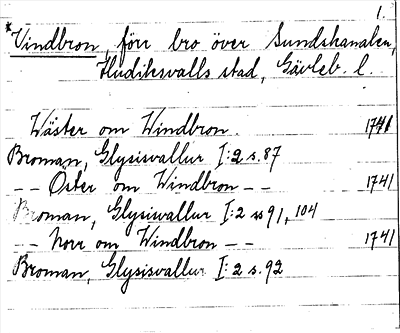 1.
*Vindbron, förr bro över Sundskanalen,
Hudiksvalls stad, Gävleb. l.
Wäster om Windbron. 1741
Broman, Glysisvallur I:2 s. 87
-- Öster om Windbron -- 1741
Broman, Glysisvallur I:2 ss 91, 104
-- Norr om Windbron -- 1741
Broman, Glysisvallur I:2 s. 92